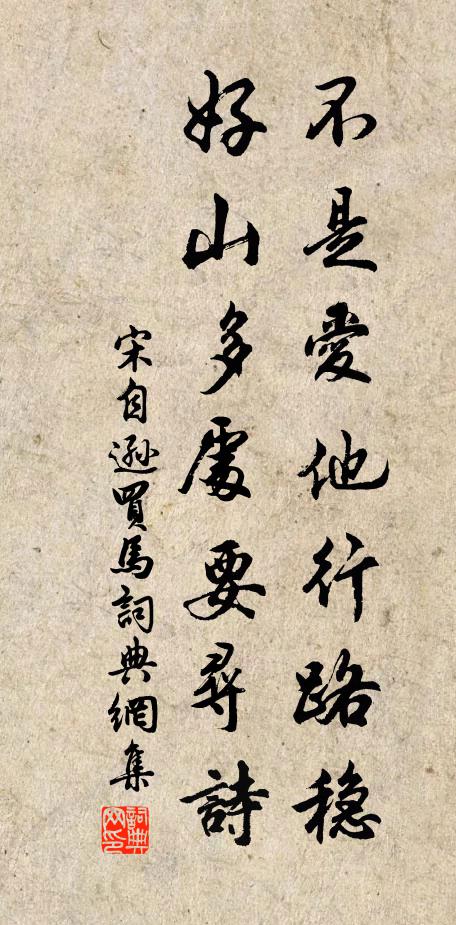 不是愛他行路穩
好山多處要尋詩
宋自遜買馬詞典網集
詞典网印